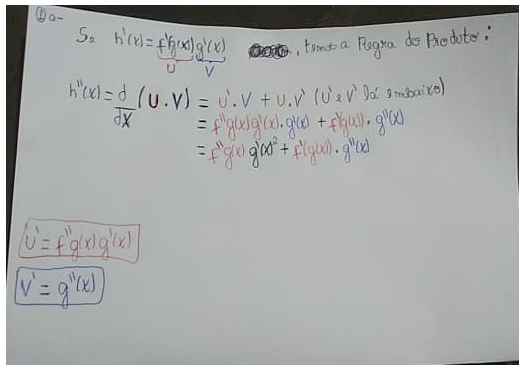 ① a-
Se h'(x) = f'(g(x)) g'(x) , temos a Regra do Produto:
U V
h''(x) = d/dx (U.V) = U'.V + U.V' (U' e V' lá embaixo)
= f''g(x)g'(x).g'(x) + f'(g(x)).g''(x)
= f''g(x) g'(x)² + f'(g(x)).g''(x)
U' = f''g(x)g'(x)
V' = g''(x)